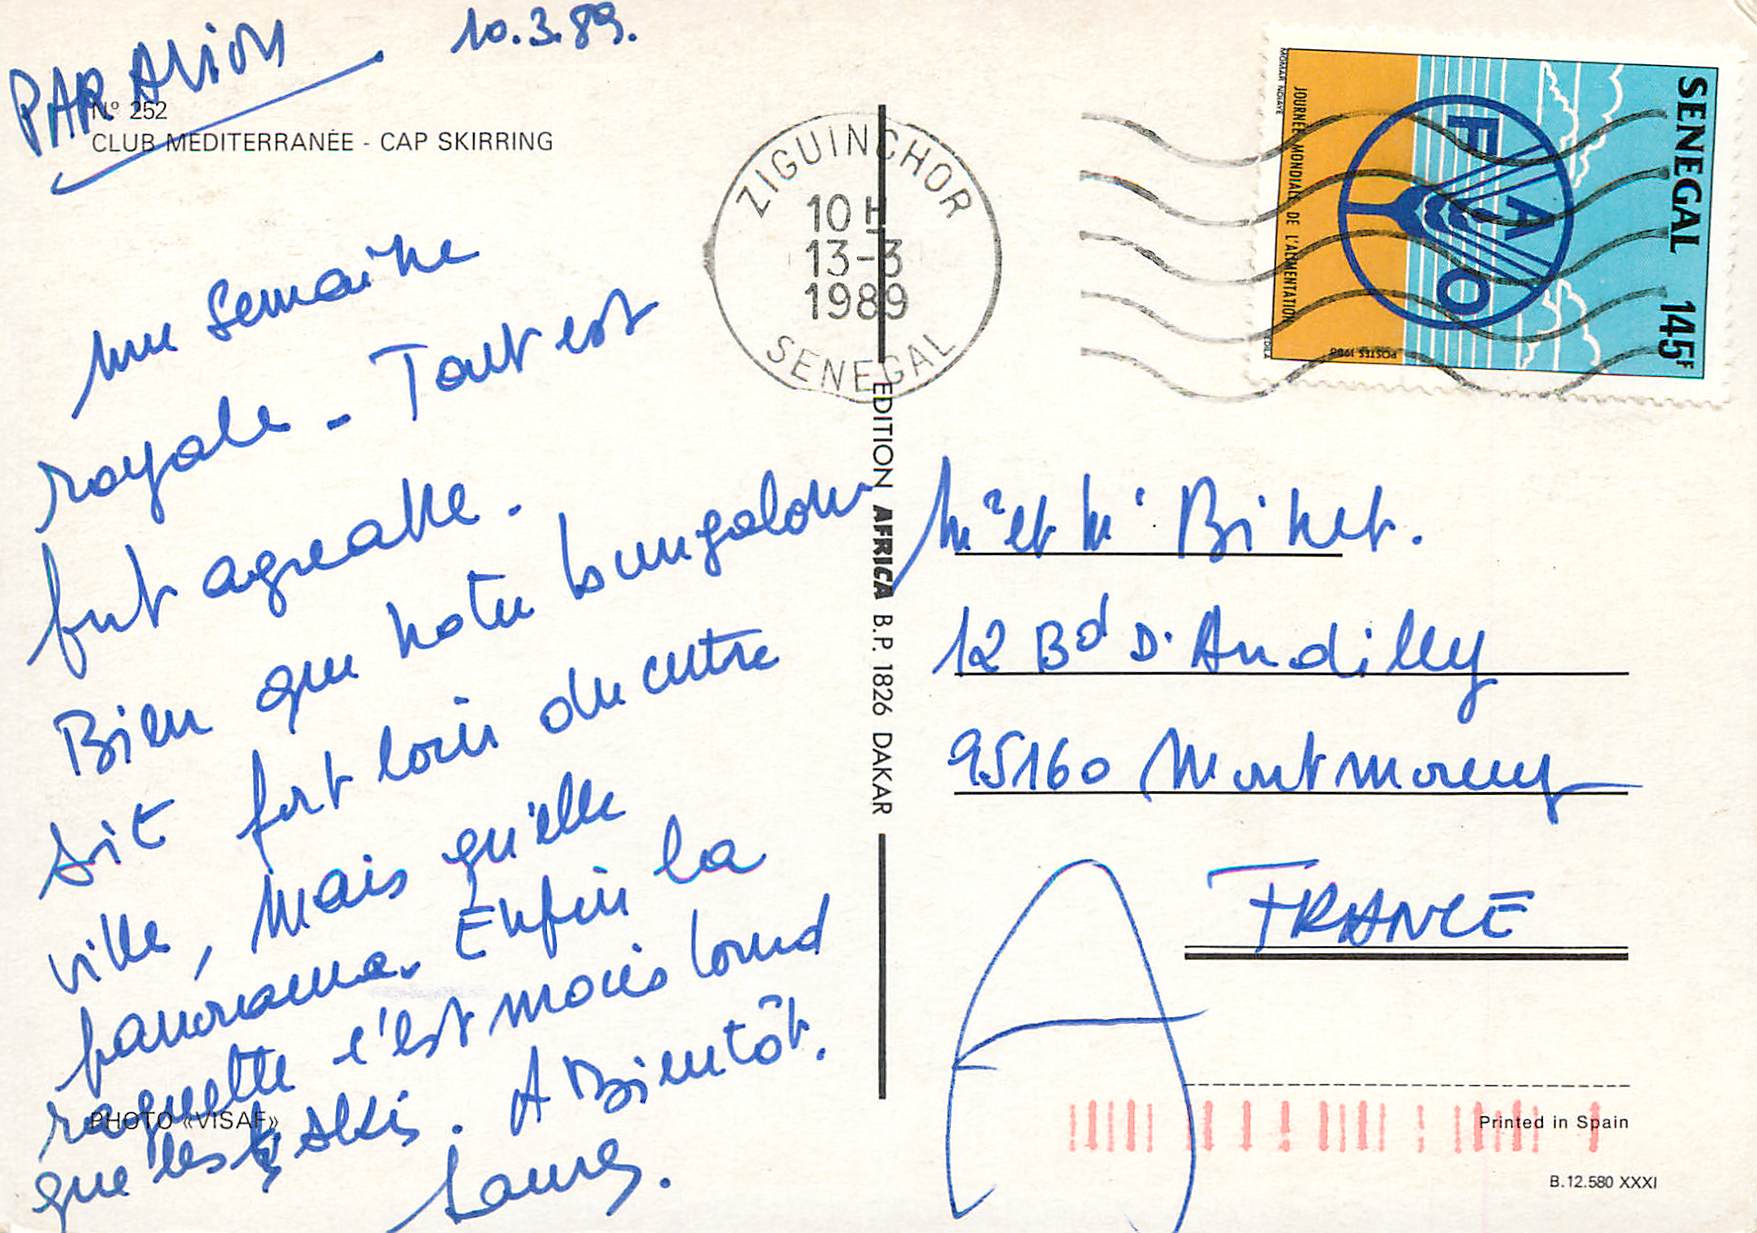 PAR AVION
10.3.89.
Nº 252
CLUB MEDITERRANÉE - CAP SKIRRING
Une semaine
royale - Tout est
fort agreable.
Bien que notre bungalow
soit fort loin du centre
ville, mais quelle
panorama. Enfin la
raquette c'est moins lourd
que les skis. A Bientôt.
PHOTO «VISAF»
ZIGUINCHOR
10 H
13-3
1989
SENEGAL
EDITION AFRICA B.P. 1826 DAKAR
SENEGAL 145F
FAO
JOURNÉE MONDIALE DE L'ALIMENTATION
MOMAR NDIAYE
POSTES 1988
EDILA
Mr et Me Binet.
12 Bd D'Andilly
95160 Montmorency
FRANCE
Printed in Spain
B.12.580 XXXI